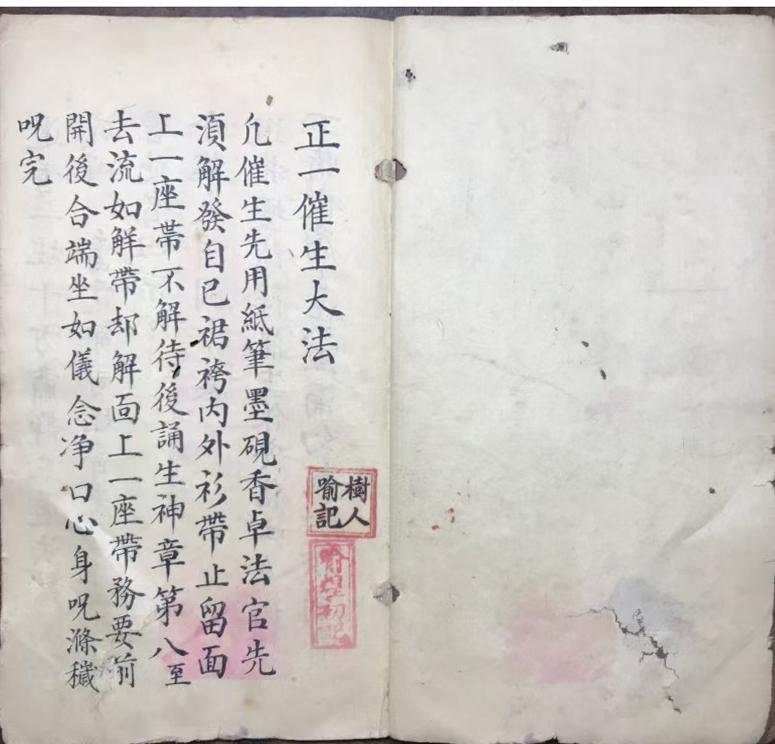 正一催生大法
凢催生先用紙筆墨硯香卓法官先
湏解發自已裙袴内外衫帶止留面
上一座帶不解待後誦生神章第八至
去流如解帶却解面上一座帶務要前
開後合端坐如儀念净口心身呪滌穢
呪完
樹人
喻記